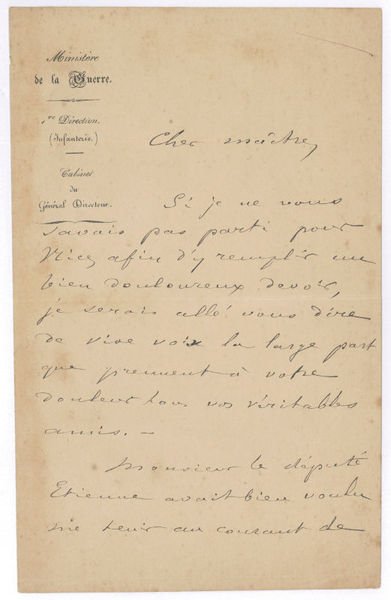 Ministère
de la Guerre.
1re Direction.
(Infanterie.)
Cabinet
du
Général Directeur.
Cher maître,
Si je ne vous
savais pas parti pour
Nice, afin d'y remplir un
bien douloureux devoir,
je serais allé vous dire
de vive voix la large part
que prennent à votre
douleur tous vos véritables
amis. —
Monsieur le député
Etienne avait bien voulu
me tenir au courant de